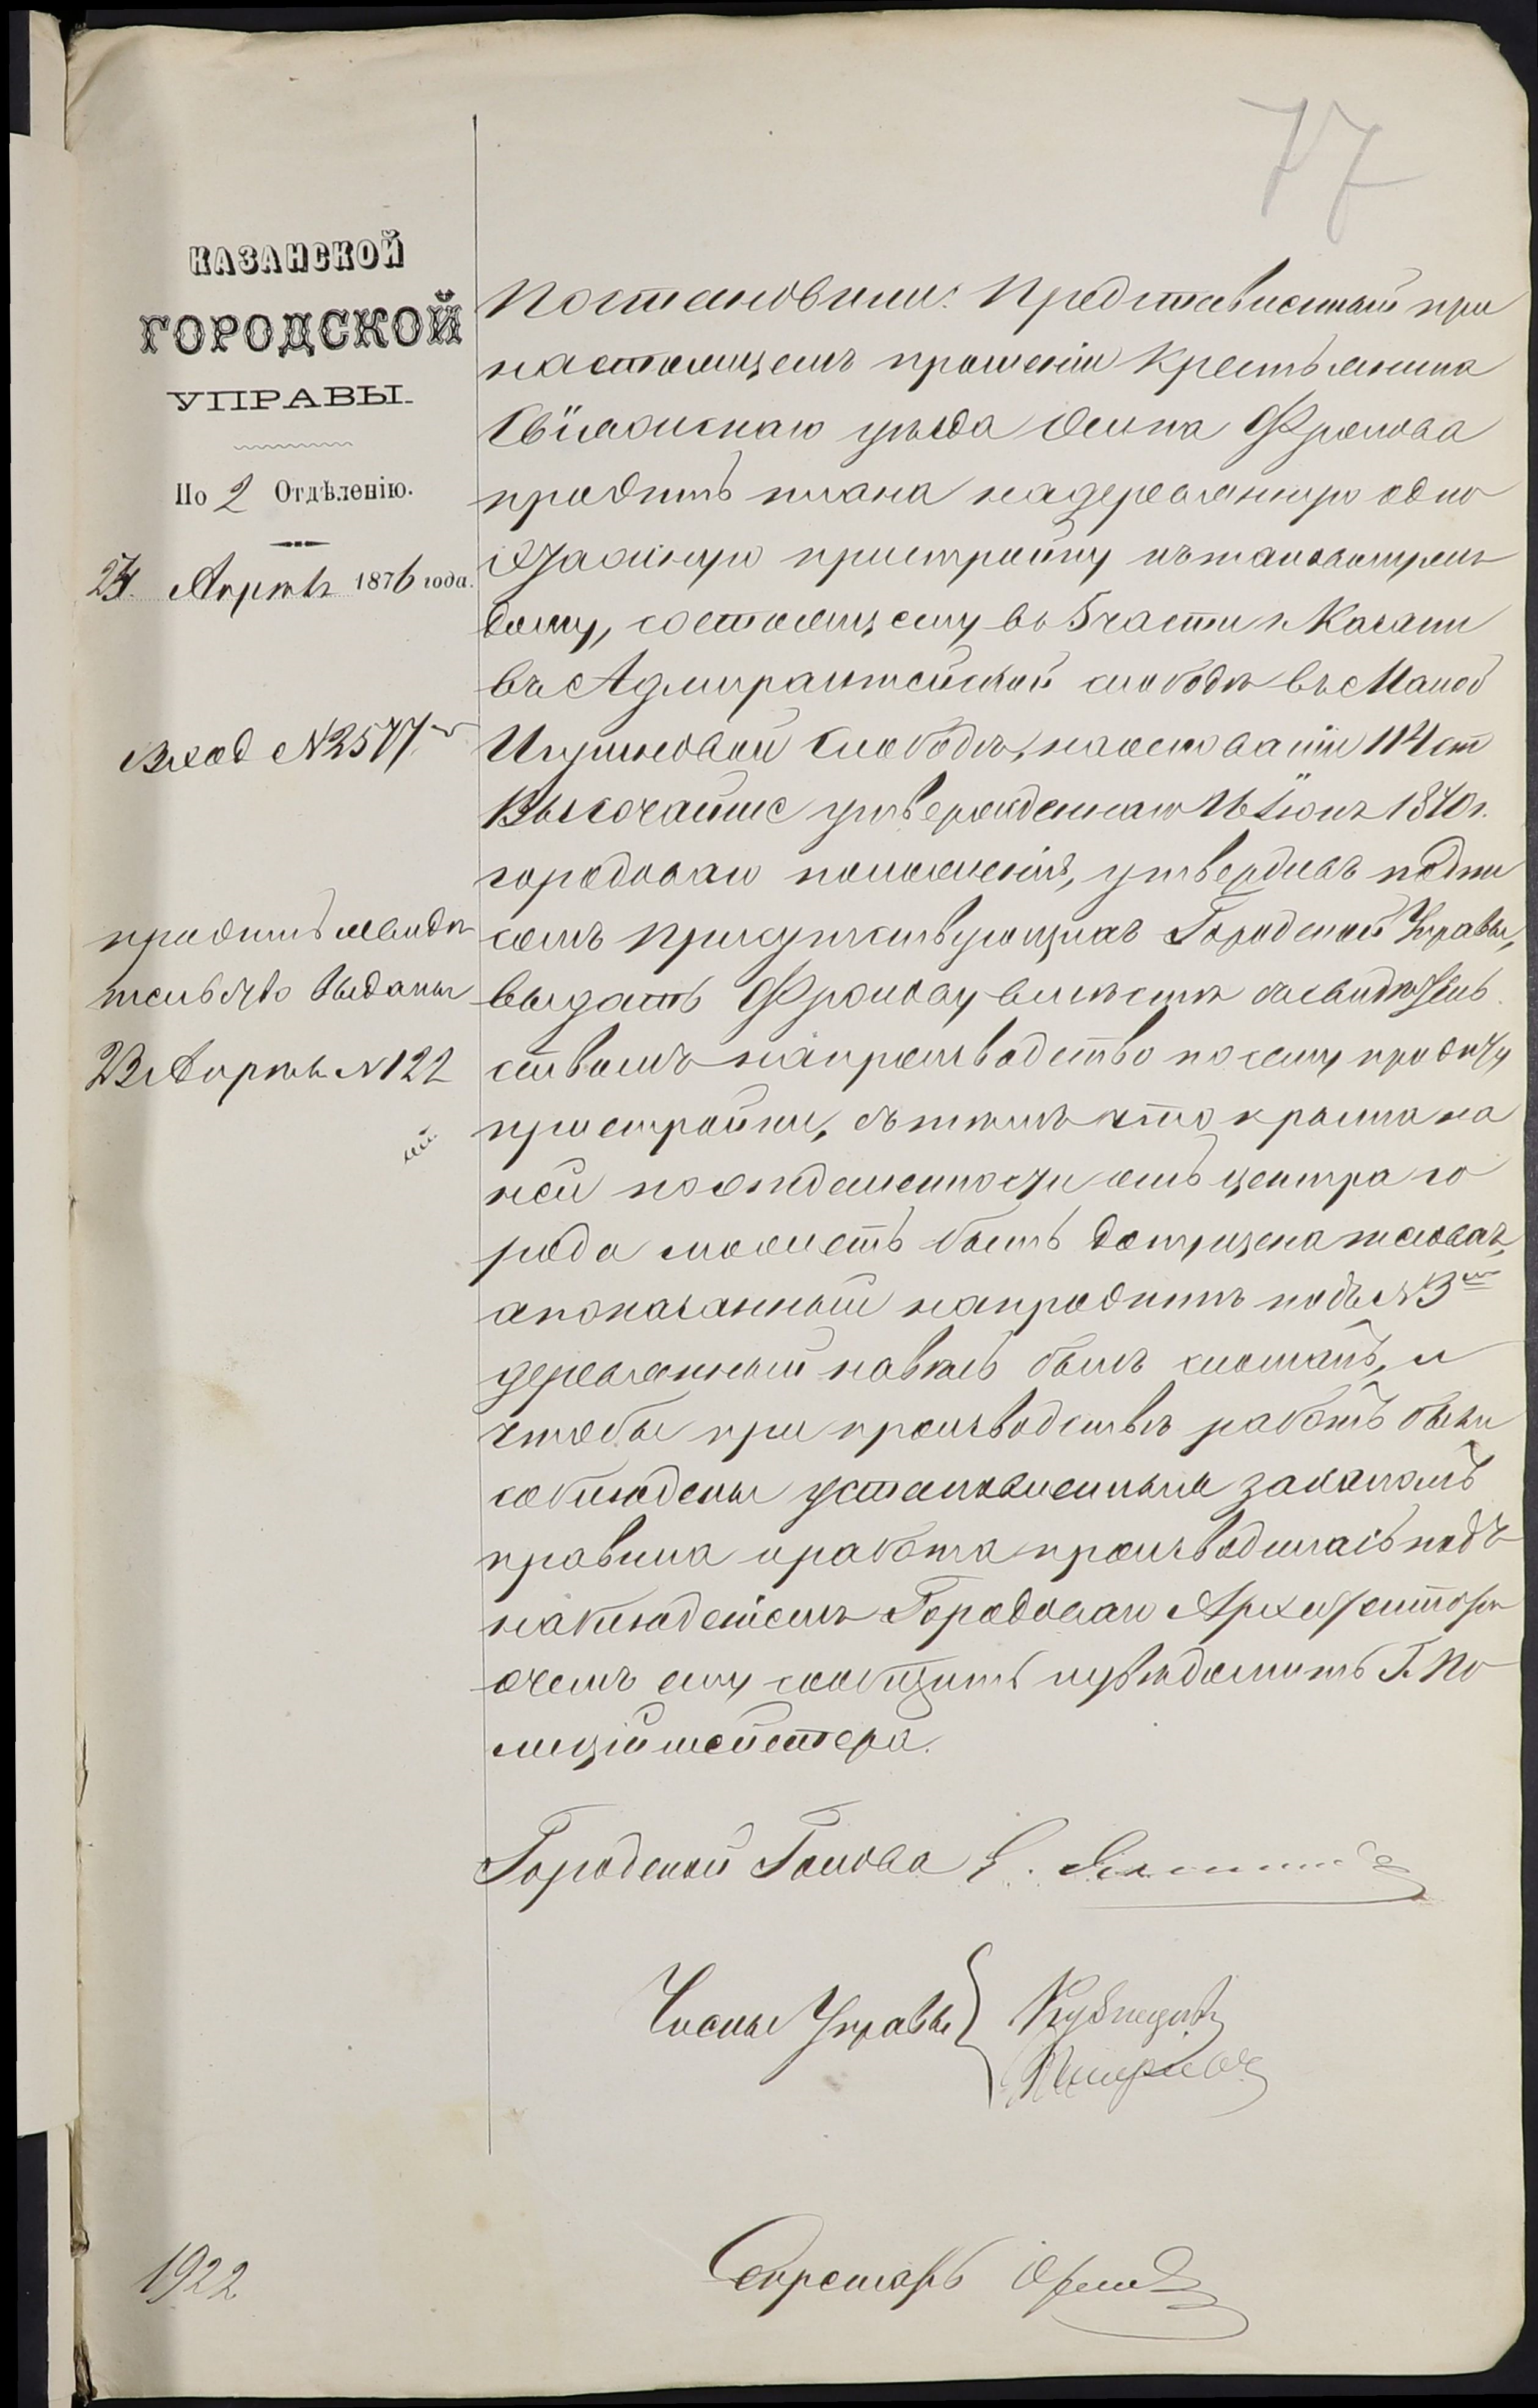 77
КАЗАНСКОЙ
ГОРОДСКОЙ
УПРАВЫ.
По 2 Отдѣленію.
Апрѣля 1876 года.
Вход №2577
проэктъ и свидѣ
тельство выданы
23 Апрѣля №122
1922
Постановили: Представленный при
настоящемъ прошеніи крестьянина
Свіяжскаго уѣзда Осипа Фролова
проэктъ плана на деревянную одно
этажную пристройку къ таковому же
дому, состоящему въ 5 части г. Казани
въ Адмиралтейской слободѣ въ Малой
Игумновой Слободѣ, на основаніи 114 ст
Высочайше утвержденнаго 16 Іюня 1870 г.
городоваго положенія, утвердивъ подпи
сомъ присутствующихъ Городской Управы,
выдать Фролову вмѣстѣ со свидѣтель
ствомъ на производство по сему проэкту
пристройки, съ тѣмъ что крыша на
ней по отдаленности отъ центра го
рода можетъ быть допущена тесовая,
а показанный на проэктѣ подъ №3мъ
деревянный навѣсъ былъ сломанъ, и
чтобы при производствѣ работъ были
соблюдены установленныя закономъ
правила и работа производилась подъ
наблюденіемъ Городоваго Архитектора
о чемъ ему сообщить и увѣдомить Г. По
лиціймейстера.
Городской Голова
Члены Управы
Кубышев
Секретарь